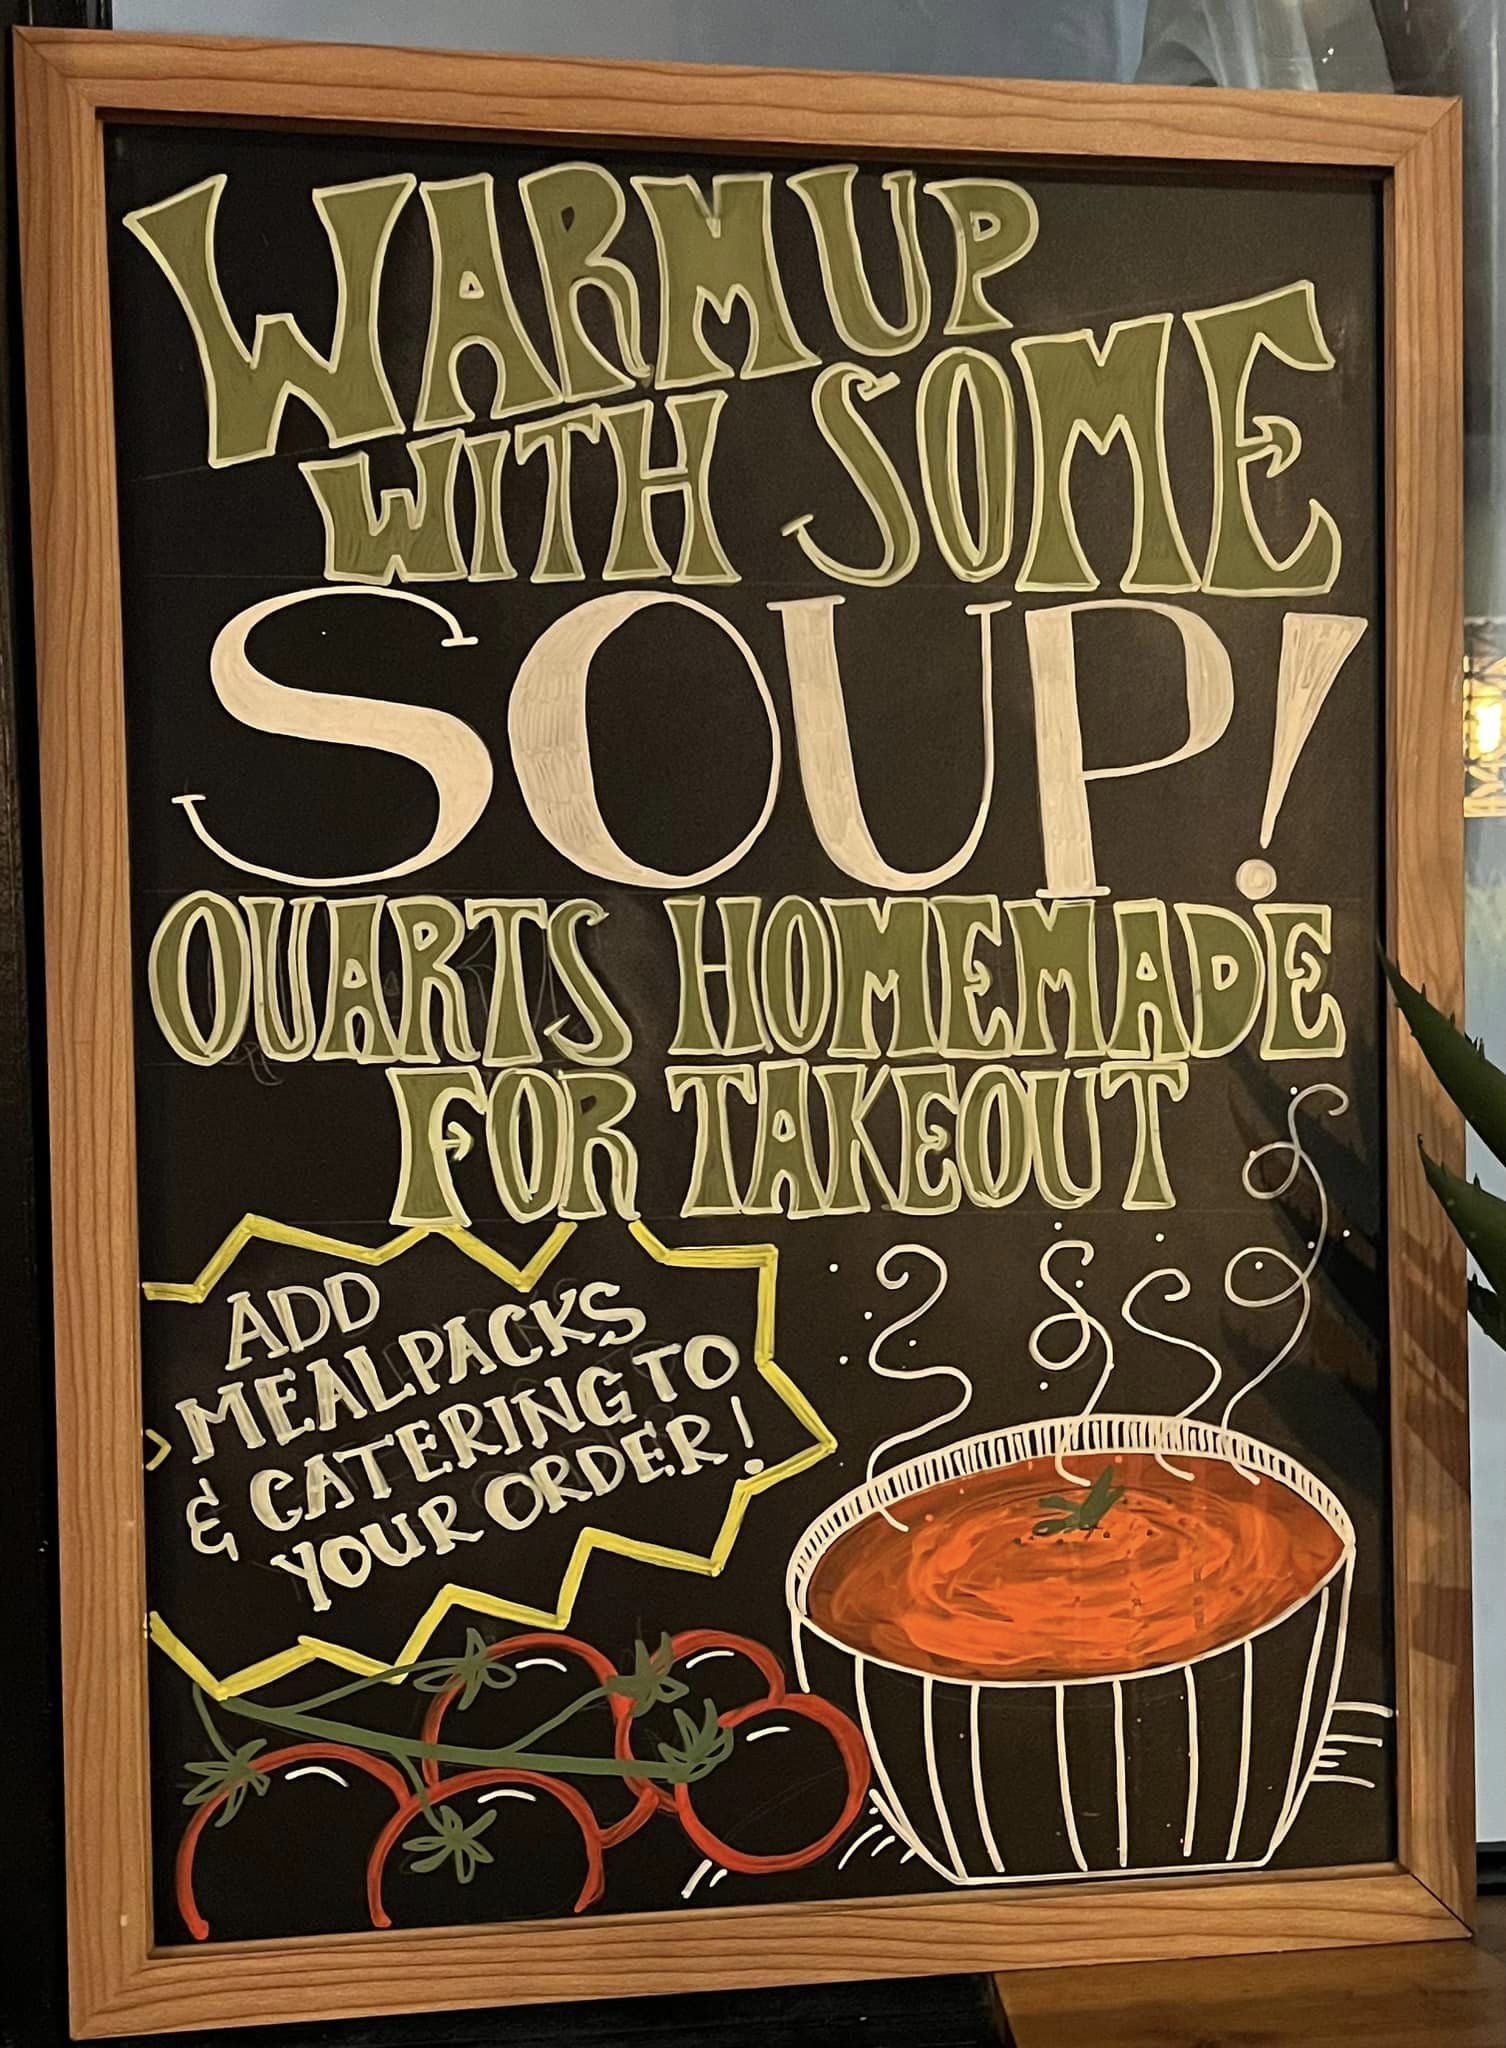 WARM UP
WITH SOME
SOUP!
QUARTS HOMEMADE
FOR TAKEOUT
ADD
MEALPACKS
& CATERING TO
YOUR ORDER!